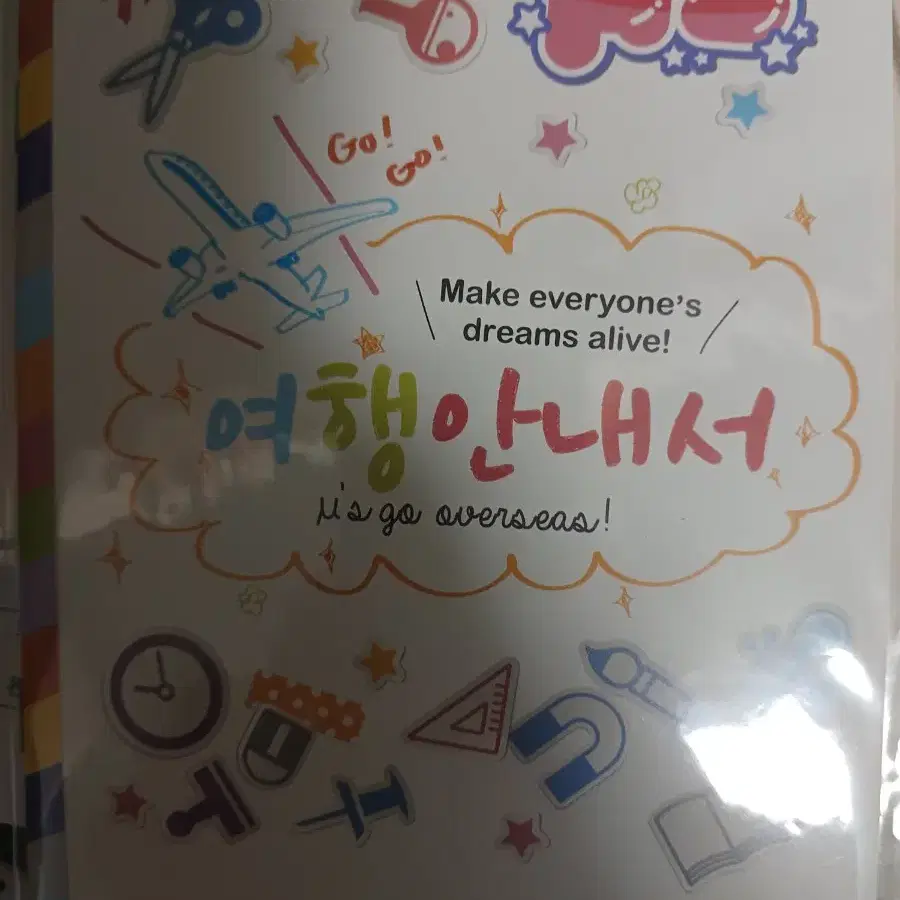 Go!
Go!
Make everyone's
dreams alive!
여행안내서
μ's go overseas!